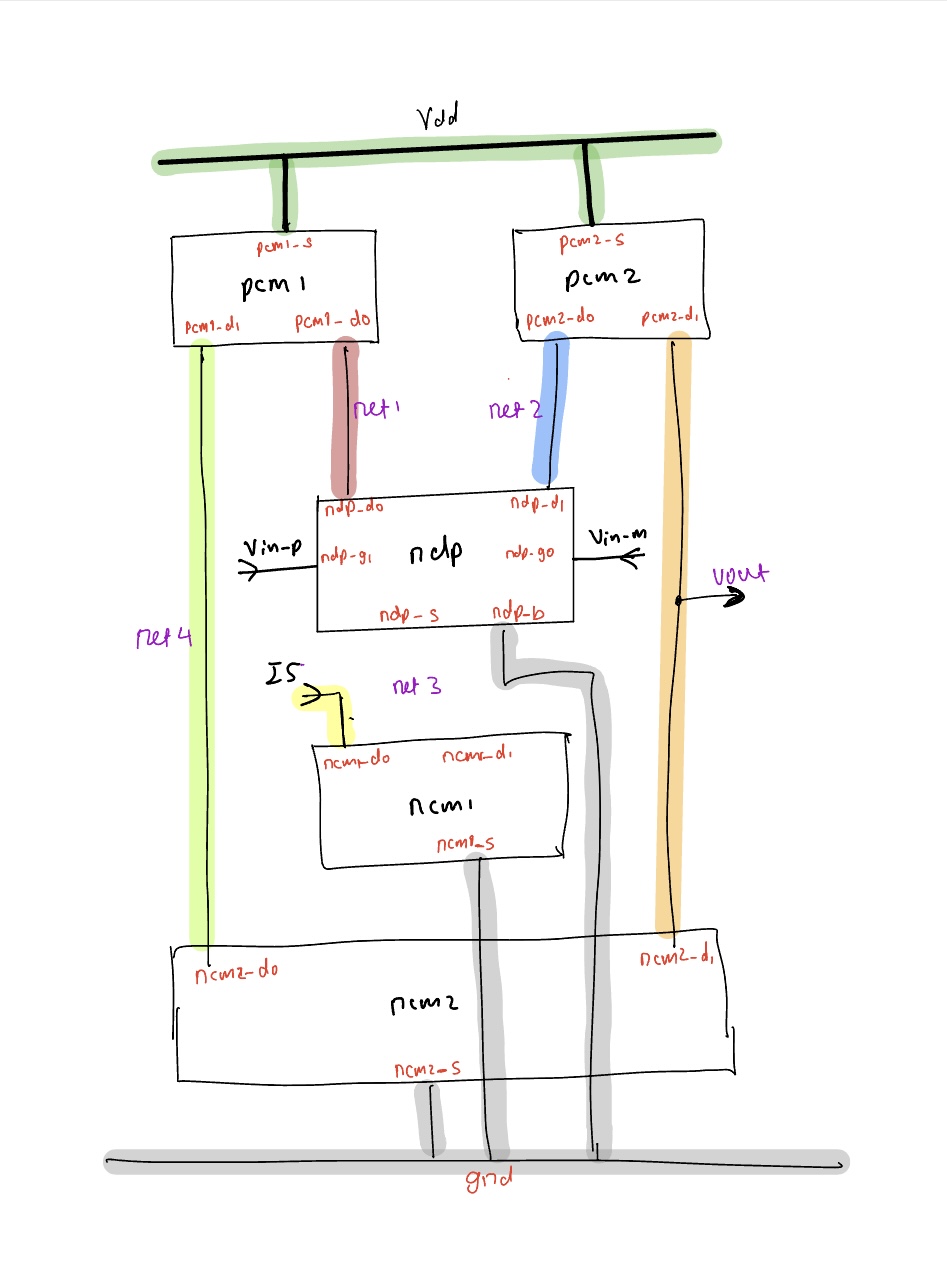 Vdd
pcm1-s
pcm2-s
pcm1
pcm2
pcm1-d1
pcm1-d0
pcm2-d0
pcm2-d1
net1
net2
ndp-d0
ndp-d1
Vin-p
ndp-g1
ndp
ndp-g0
Vin-m
vout
ndp-s
ndp-b
net4
IS
net 3
ncm1-d0
ncm1-d1
ncm1
ncm1-s
ncm2-d0
ncm2-d1
ncm2
ncm2-s
gnd